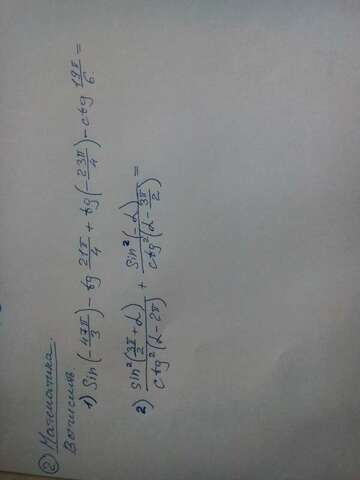 ② Математика.
Вычислить
1) Sin(-47π/3) - tg 21π/4 + tg(-23π/4) - ctg 19π/6 =
2) sin²(3π/2 + α)/ctg²(α - 2π) + sin²(-α)/ctg²(α - 3π/2) =